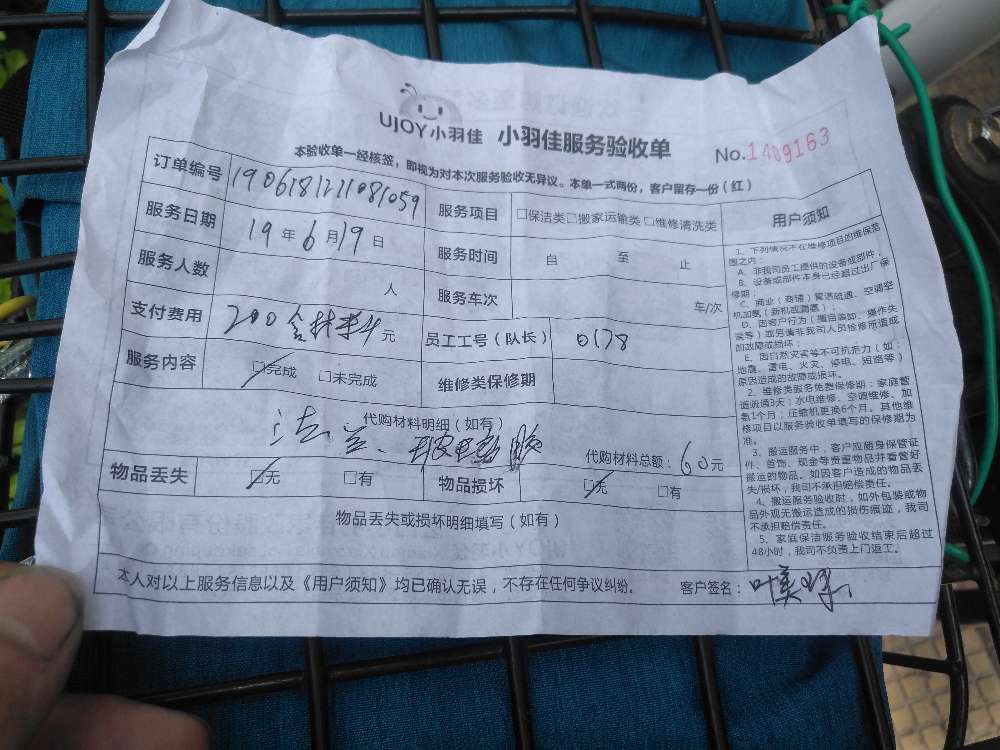 UJOY小羽佳 小羽佳服务验收单 No.1409163
本验收单一经核签，即视为对本次服务验收无异议。本单一式两份，客户留存一份（红）
订单编号 190618121108059 服务项目 □保洁类□搬家运输类□维修清洗类
服务日期 19年6月19日 服务时间 自 至 止
服务人数 人 服务车次 车/次
支付费用 200含材料元 员工工号（队长） 0178
服务内容 □完成 □未完成 维修类保修期
代购材料明细（如有）
法兰、玻璃胶 代购材料总额：60元
物品丢失 □无 □有 物品损坏 □无 □有
物品丢失或损坏明细填写（如有）
本人对以上服务信息以及《用户须知》均已确认无误，不存在任何争议纠纷。 客户签名：叶美
用户须知
1、下列情况不在维修项目的维保范
围之内：
A、非我司员工提供的设备或部件；
B、设备或部件本身已经超过出厂保
修期；
C、商业（商铺）管道疏通、空调空
机加氨（新机或漏氨）；
D、因客户行为（擅自装卸、操作失
误等）或另请非我司人员检修所造成
的故障或损坏；
E、因自然灾害等不可抗拒力（如：
地震、雷电、火灾、停电、短路等）
原因造成的故障或损坏。
2、维修类服务免费保修期：家庭管
道疏通3天；水电维修、空调维修、加
氨1个月；压缩机更换6个月。其他维
修项目以服务验收单填写的保修期为
准。
3、搬运服务中，客户应随身保管证
件、首饰、现金等贵重物品并看管好
搬运的物品。如因客户造成的物品丢
失/损坏，我司不承担赔偿责任。
4、搬运服务验收时，如外包装或物
品外观无搬运造成的损伤痕迹，我司
不承担赔偿责任。
5、家庭保洁服务验收结束后超过
48小时，我司不负责上门返工。